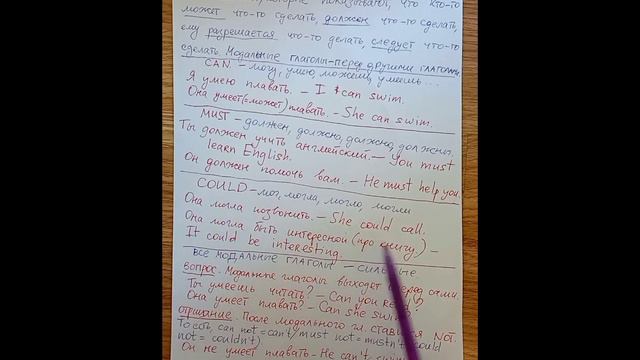 которые показывают, что кто-то
может что-то сделать, должен что-то сделать,
ему разрешается что-то делать, следует что-то
сделать. Модальные глаголы-перед другими глаголами
CAN – могу, умею, можешь, умеешь...
Я умею плавать. – I can swim.
Она умеет(=может) плавать. – She can swim.
MUST – должен, должно, должна, должны.
Ты должен учить английский. – You must
learn English.
Он должен помочь вам. – He must help you.
COULD – мог, могла, могло, могли
Она могла позвонить. – She could call.
Она могла быть интересной (про книгу) –
It could be interesting.
ВСЕ МОДАЛЬНЫЕ ГЛАГОЛЫ – СИЛЬНЫЕ
вопрос. Модальные глаголы выходят вперед сами.
Ты умеешь читать? – Can you read?
Она умеет плавать? – Can she swim?
отрицание. После модального гл. ставится NOT.
То есть, can not = can't / must not = mustn't / could
not = couldn't)
Он не умеет плавать – He can't swim